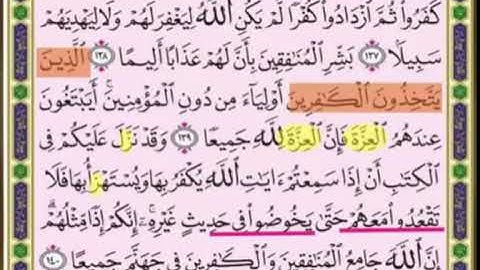 كَفَرُوا۟ ثُمَّ ٱزْدَادُوا۟ كُفْرًا لَّمْ يَكُنِ ٱللَّهُ لِيَغْفِرَ لَهُمْ وَلَا لِيَهْدِيَهُمْ
سَبِيلًا ١٣٧ بَشِّرِ ٱلْمُنَٰفِقِينَ بِأَنَّ لَهُمْ عَذَابًا أَلِيمًا ١٣٨ ٱلَّذِينَ
يَتَّخِذُونَ ٱلْكَٰفِرِينَ أَوْلِيَآءَ مِن دُونِ ٱلْمُؤْمِنِينَ ۚ أَيَبْتَغُونَ
عِندَهُمُ ٱلْعِزَّةَ فَإِنَّ ٱلْعِزَّةَ لِلَّهِ جَمِيعًا ١٣٩ وَقَدْ نَزَّلَ عَلَيْكُمْ فِى
ٱلْكِتَٰبِ أَنْ إِذَا سَمِعْتُمْ ءَايَٰتِ ٱللَّهِ يُكْفَرُ بِهَا وَيُسْتَهْزَأُ بِهَا فَلَا
تَقْعُدُوا۟ مَعَهُمْ حَتَّىٰ يَخُوضُوا۟ فِى حَدِيثٍ غَيْرِهِۦٓ ۚ إِنَّكُمْ إِذًا مِّثْلُهُمْ ۗ
إِنَّ ٱللَّهَ جَامِعُ ٱلْمُنَٰفِقِينَ وَٱلْكَٰفِرِينَ فِى جَهَنَّمَ جَمِيعًا ١٤٠